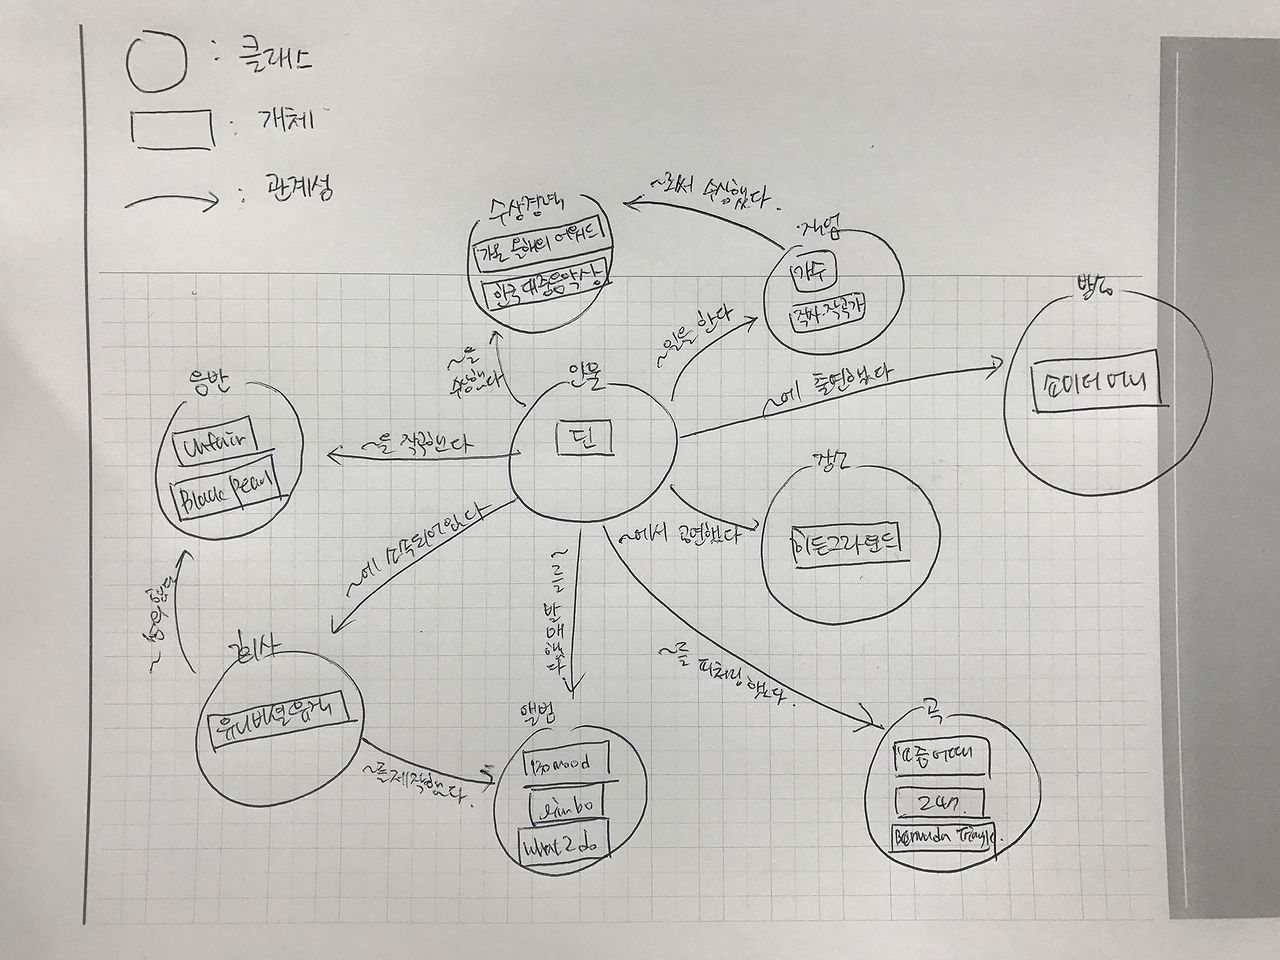 : 클래스
: 개체
: 관계성
수상경력
가온 올해의 어워드
한국대중음악상
~로써 수상했다.
직업
가수
작사·작곡가
방송
쇼미더머니
~을 수상했다
~일을 한다
~에 출연했다
인물
딘
음반
Unfair
Black Pearl
~을 작곡했다
장소
이든그라운드
~에서 공연했다
~에 소속되어있다
~를 발매했다
~를 피처링 했다.
회사
유니버설뮤직
~를제작했다.
앨범
130mood
limbo
What2do
곡
요즘어때
247.
Bermuda Triangle.